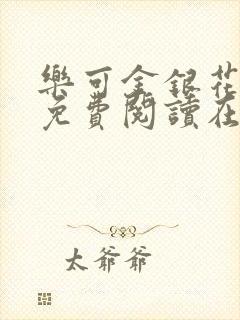 樂可金銀花
免費閱讀在
太爺爺